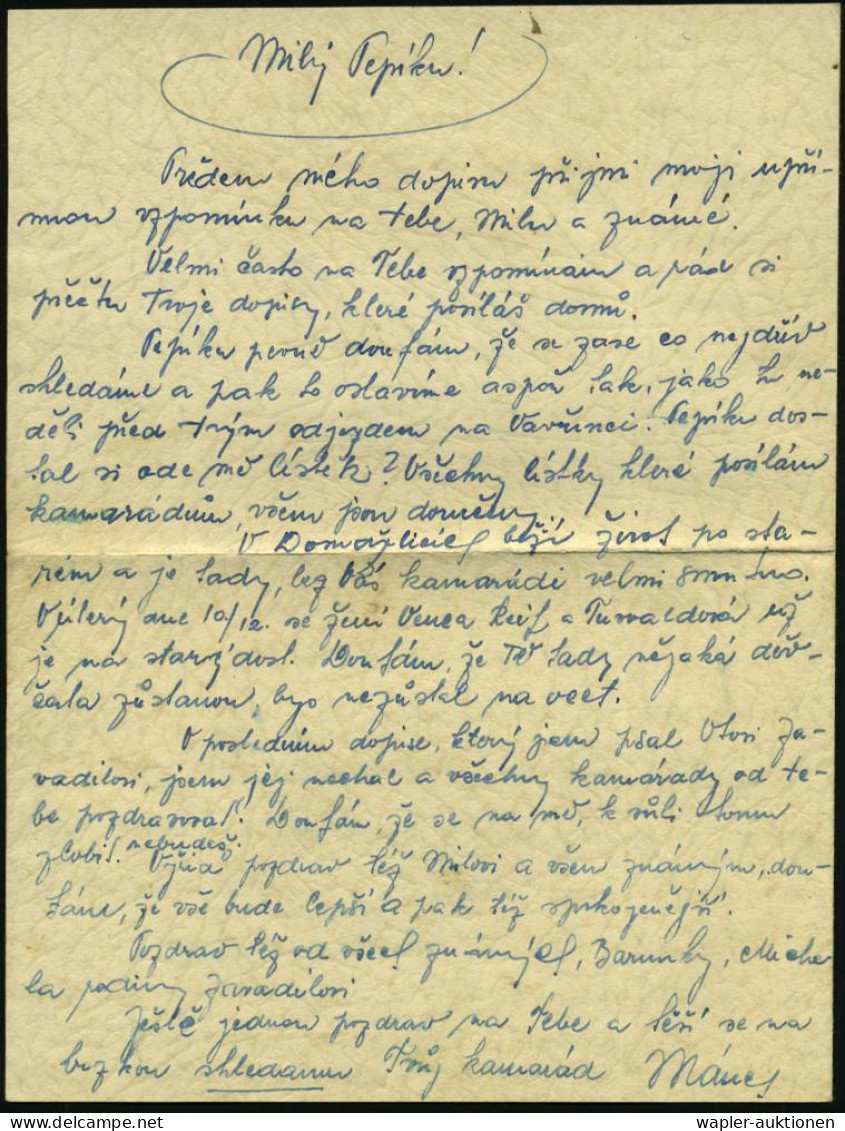 Milý Pepíku!
Předem mého dopisu přijmi moji upří-
mnou vzpomínku na tebe, Milu a známé.
Velmi často na Tebe vzpomínám a rád si
přečtu Tvoje dopisy, které posíláš domů.
Pepíku pevně doufám, že se zase co nejdřív
shledáme a pak to oslavíme aspoň tak, jako tu ne-
děli před tvým odjezdem na Vavřinci. Pepíku dos-
tal si ode mě lístek? Všechny lístky které posílám
kamarádům, všem jsou doručeny.
V Domažlicích běží život po sta-
rém a je tady, bez Vás kamarádi velmi smutno.
V úterý dne 10/12. se žení Venca a už
je na starý dost. Doufám, že Tě tady nějaká děv-
čata zůstanou, bys nezůstal na ocet.
V posledním dopise, který jsem psal Otovi Za-
vadilovi, jsem jej nechal a všechny kamarády od te-
be pozdravovat. Doufám, že se na mě, k vůli tomu
zlobit nebudeš. Vyřiď pozdrav též Milovi a všem známým, dou-
fáme, že vše bude lepší a pak též spokojenější.
Pozdrav též od všech známých, Barunky, Miche
la rodiny Zavadilovi
Ještě jednou pozdrav na Tebe a těší se na
brzkou shledanu Tvůj kamarád
wapler-auktionen